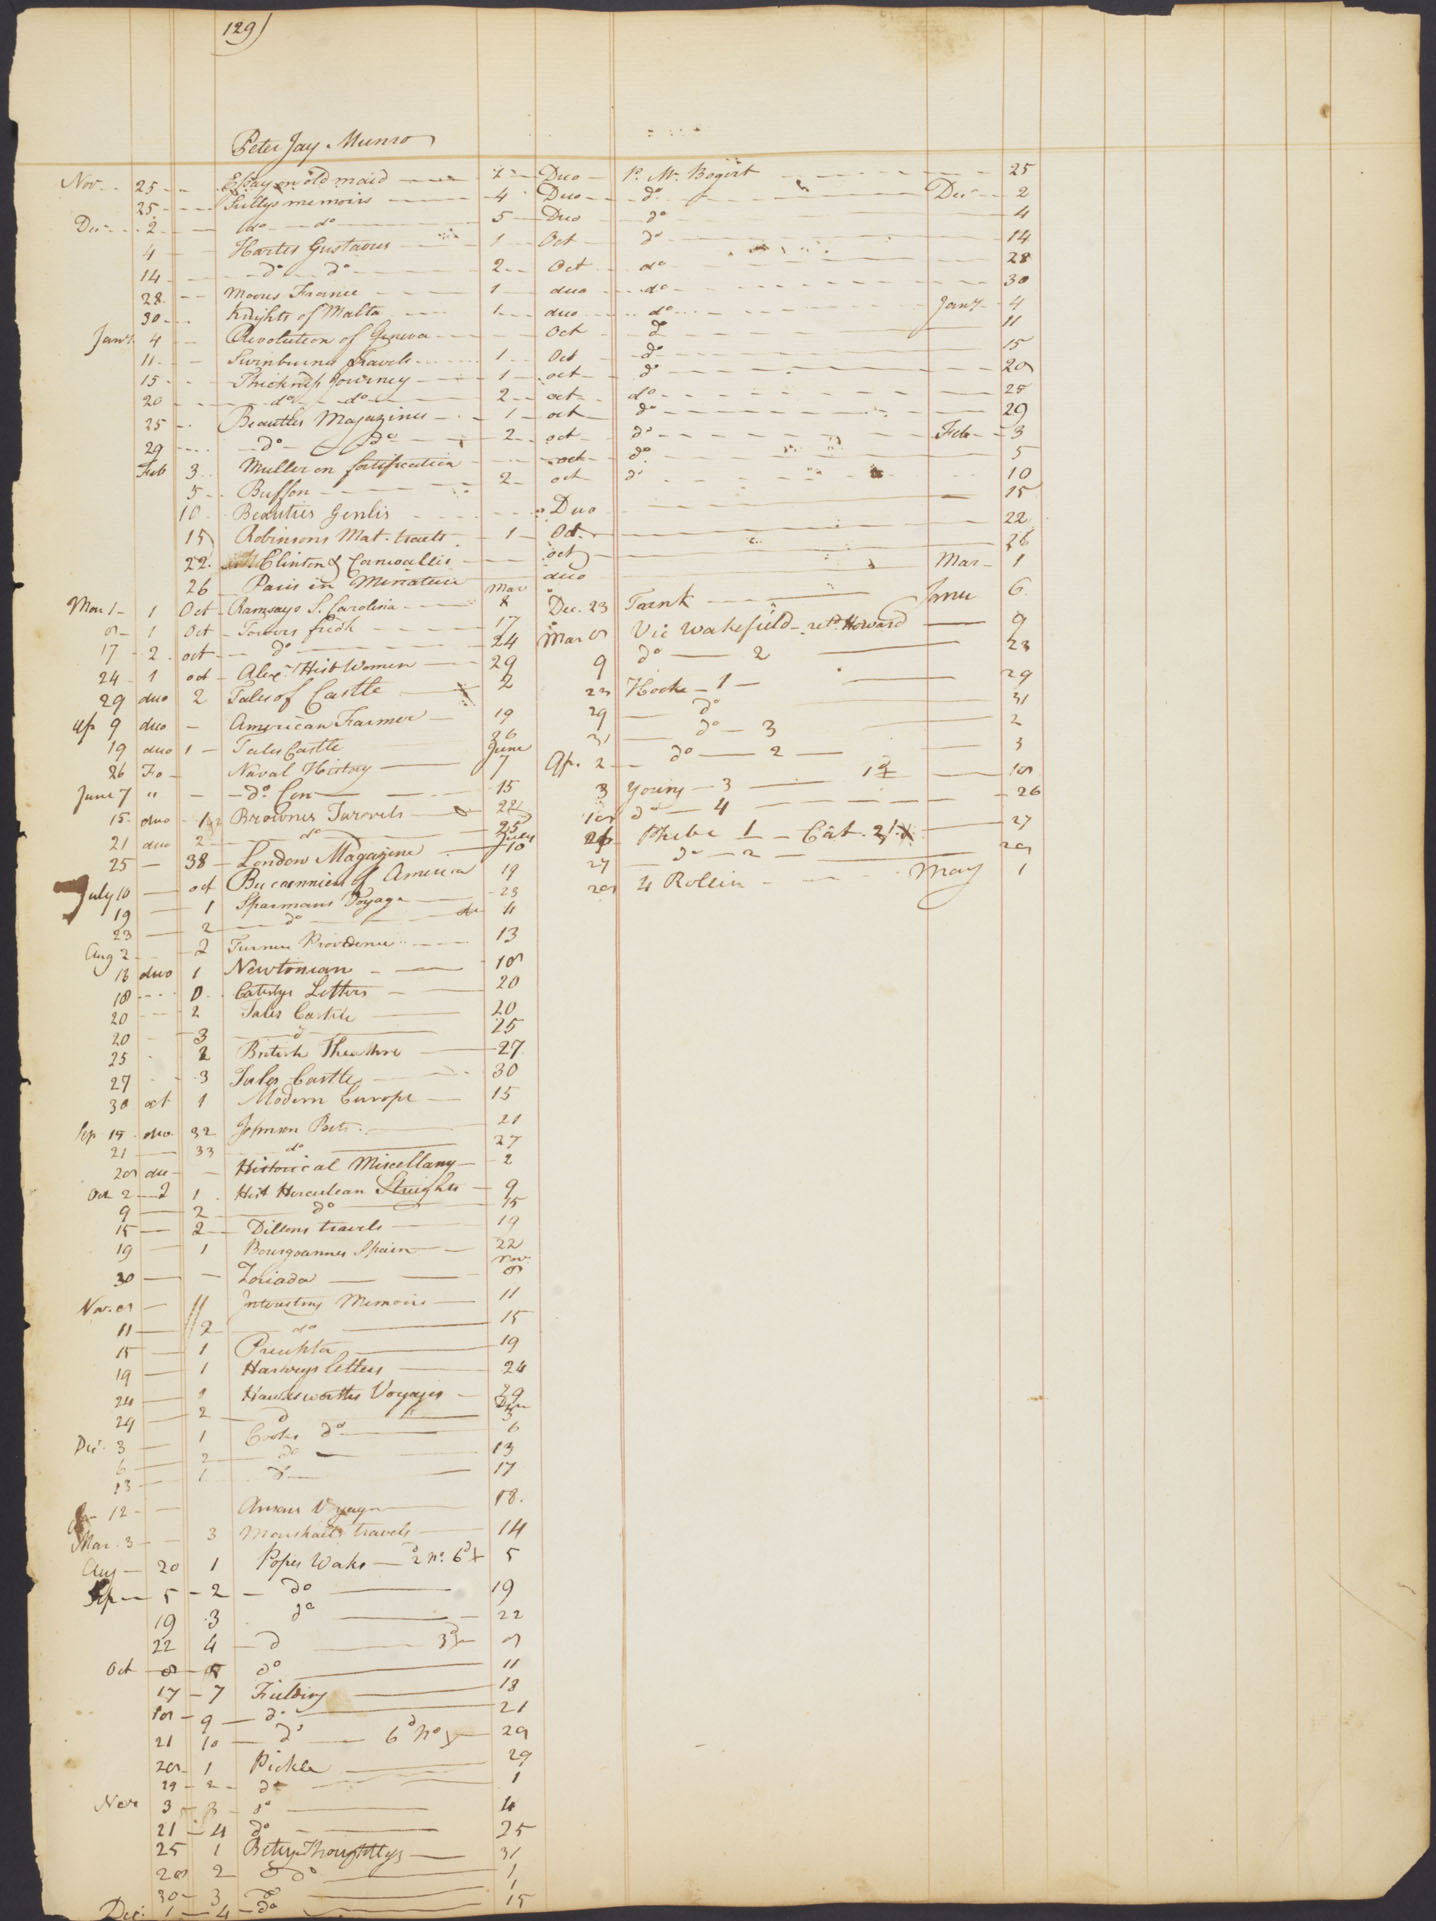 129)
Peter Jay Munro
Nov 25 Essay on old maid 2 Duo P. W. Bogert 25
25 Sullys memoirs 4 Duo do Dec 2
Dec 2 do do 5 Duo do 4
4 Hartes Gustavus 1 Oct do 14
14 do do 2 Oct do 28
28 Moores France 1 duo do 30
30 Knights of Malta 1 duo do Jany 4
Jany 4 Revolution of Geneva Oct do 11
11 Swinburnes travels 1 Oct do 15
15 Thickness Journey 1 oct do 20
20 do do 2 oct do 25
25 Beauties Magazines 1 oct do 29
29 do do 2 oct do Feb 3
Feb 3 Muller on fortification oct do 5
5 Buffon 2 oct do 10
10 Beauties Genlis Duo 15
15 Robinsons Mat. tracts 1 Oct 22
22 Clinton & Cornwallis oct 26
26 Paris in Miniature duo Mar 1
Mar 1 1 Oct Ramsays S. Carolina Mar 8 Dec. 23 Trenk Janu 6
8 1 Oct Towers fredk 17 Mar 8 Vic Wakefield retd Howard 9
17 2 oct do 24 9 do 2 23
24 1 oct Alex. Hist Women 29 23 Hooke 1 29
29 duo 2 Tales of Castle 2 29 do 31
Ap 9 duo American Farmer 19 31 do 3 2
19 duo 1 Tales Castle 26 Ap. 2 do 2 3
26 Fo Naval History June 7 3 Young 3 18
June 7 " do Con 15 18 do 4 26
15 duo 1 Brownes Travels 22 26 Phebe 1 Cat. 27
21 duo 2 do 25 27 do 2 28
25 38 London Magazine July 10 28 4 Rollin May 1
July 10 oct Buccanniers of America 19
19 1 Sparmans Voyage 23
23 2 do 4
Aug 2 2 Turner Providence 13
13 duo 1 Newtonian 18
18 Catesbys Letters 20
20 2 Tales Castle 20
20 3 do 25
25 2 British Theatre 27
27 3 Tales Castle 30
30 oct 1 Modern Europe 15
Sep 15 duo 32 Johnson Poets 21
21 33 do 27
28 duo Historical Miscellany 2
Oct 2 2 1 Hist Herculean Streights 9
9 2 do 15
15 2 Dillons travels 19
19 1 Bourgoannes Spain 22
30 Zoriada Nov 8
Nov. 8 Interesting Memoirs 11
11 2 do 15
15 1 Preceptor 19
19 1 Harveys letters 24
24 1 Hawksworths Voyages 29
29 2 do Dec 3
Dec. 3 1 Cooks do 6
6 2 do 13
13 1 do 17
12 Ansons Voyage 18
Mar. 3 3 Marshalls travels 14
Aug 20 1 Popes Works 5
Sep 5 2 do 19
19 3 do 22
22 4 do 8
Oct 8 do 11
17 7 Fielding 18
18 9 do 21
21 10 do 28
28 1 Pickle 29
29 2 do 1
Nov 3 3 do 4
21 4 do 25
25 1 Betsy Thoughtlys 31
28 2 do 1
30 3 do 1
Dec. 1 4 do 15